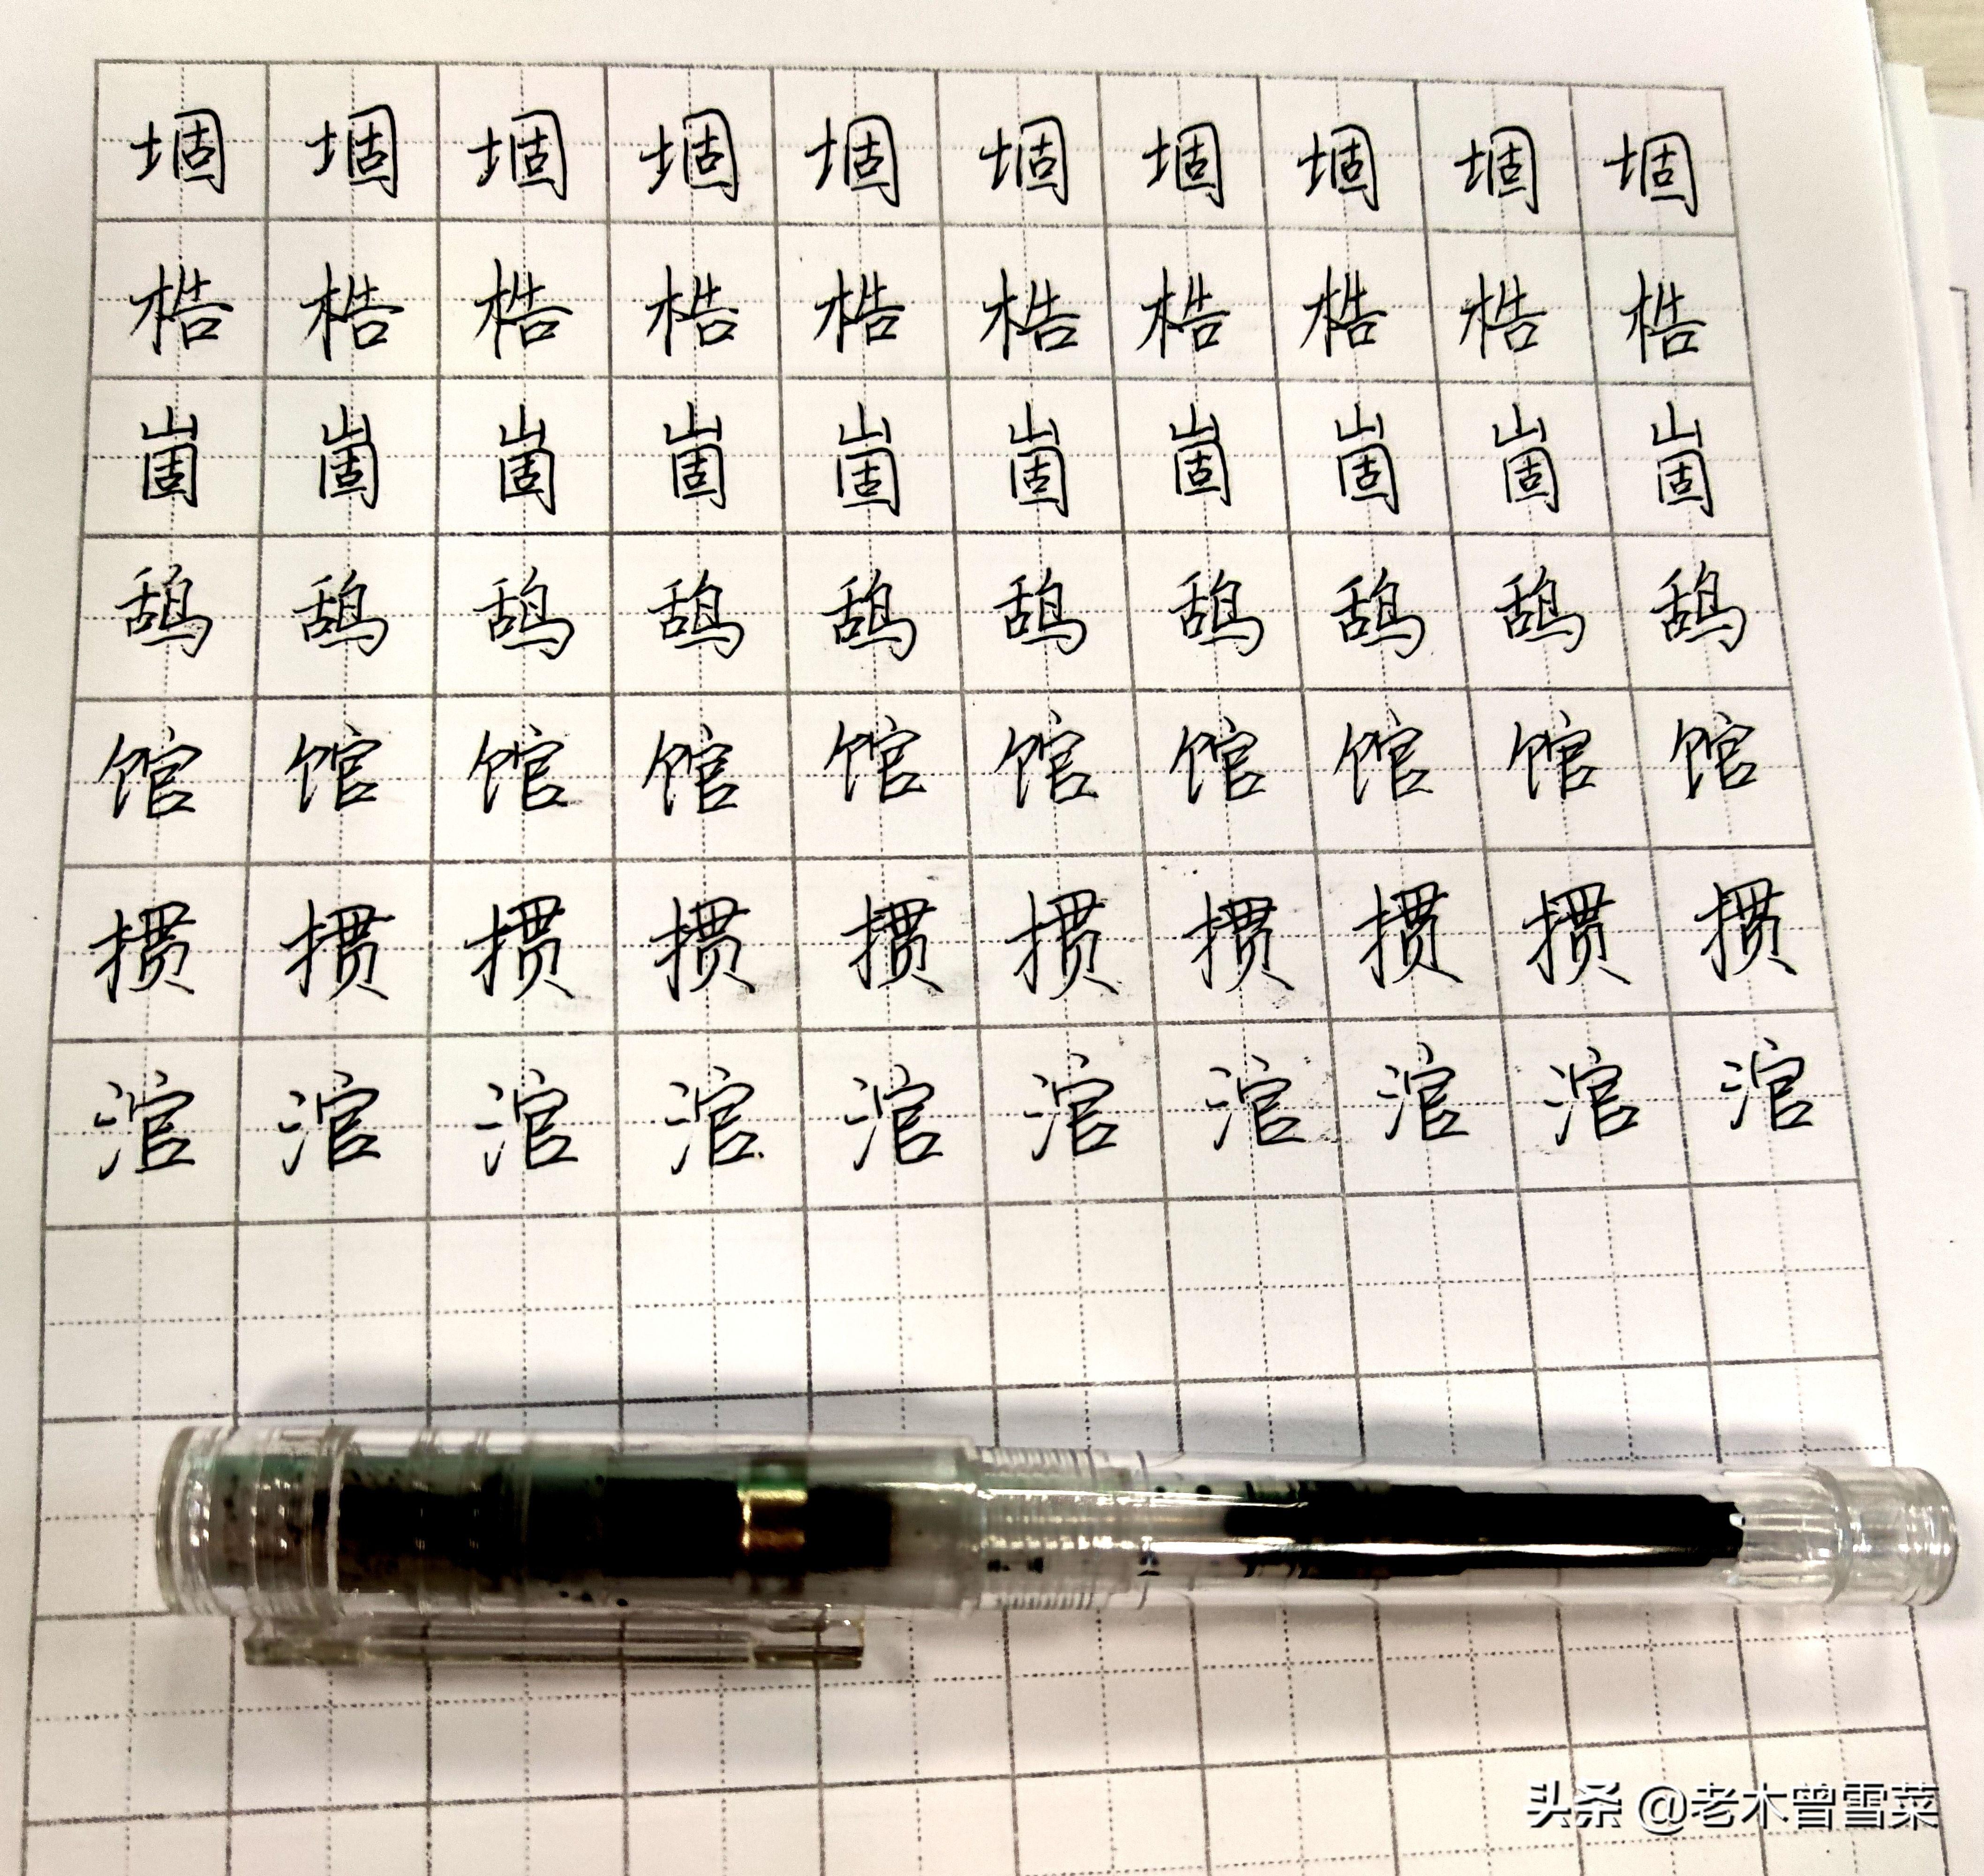 堌 堌 堌 堌 堌 堌 堌 堌 堌 堌
梏 梏 梏 梏 梏 梏 梏 梏 梏 梏
崮 崮 崮 崮 崮 崮 崮 崮 崮 崮
鸹 鸹 鸹 鸹 鸹 鸹 鸹 鸹 鸹 鸹
馆 馆 馆 馆 馆 馆 馆 馆 馆 馆
掼 掼 掼 掼 掼 掼 掼 掼 掼 掼
涫 涫 涫 涫 涫 涫 涫 涫 涫 涫
头条 @老木曾雪菜